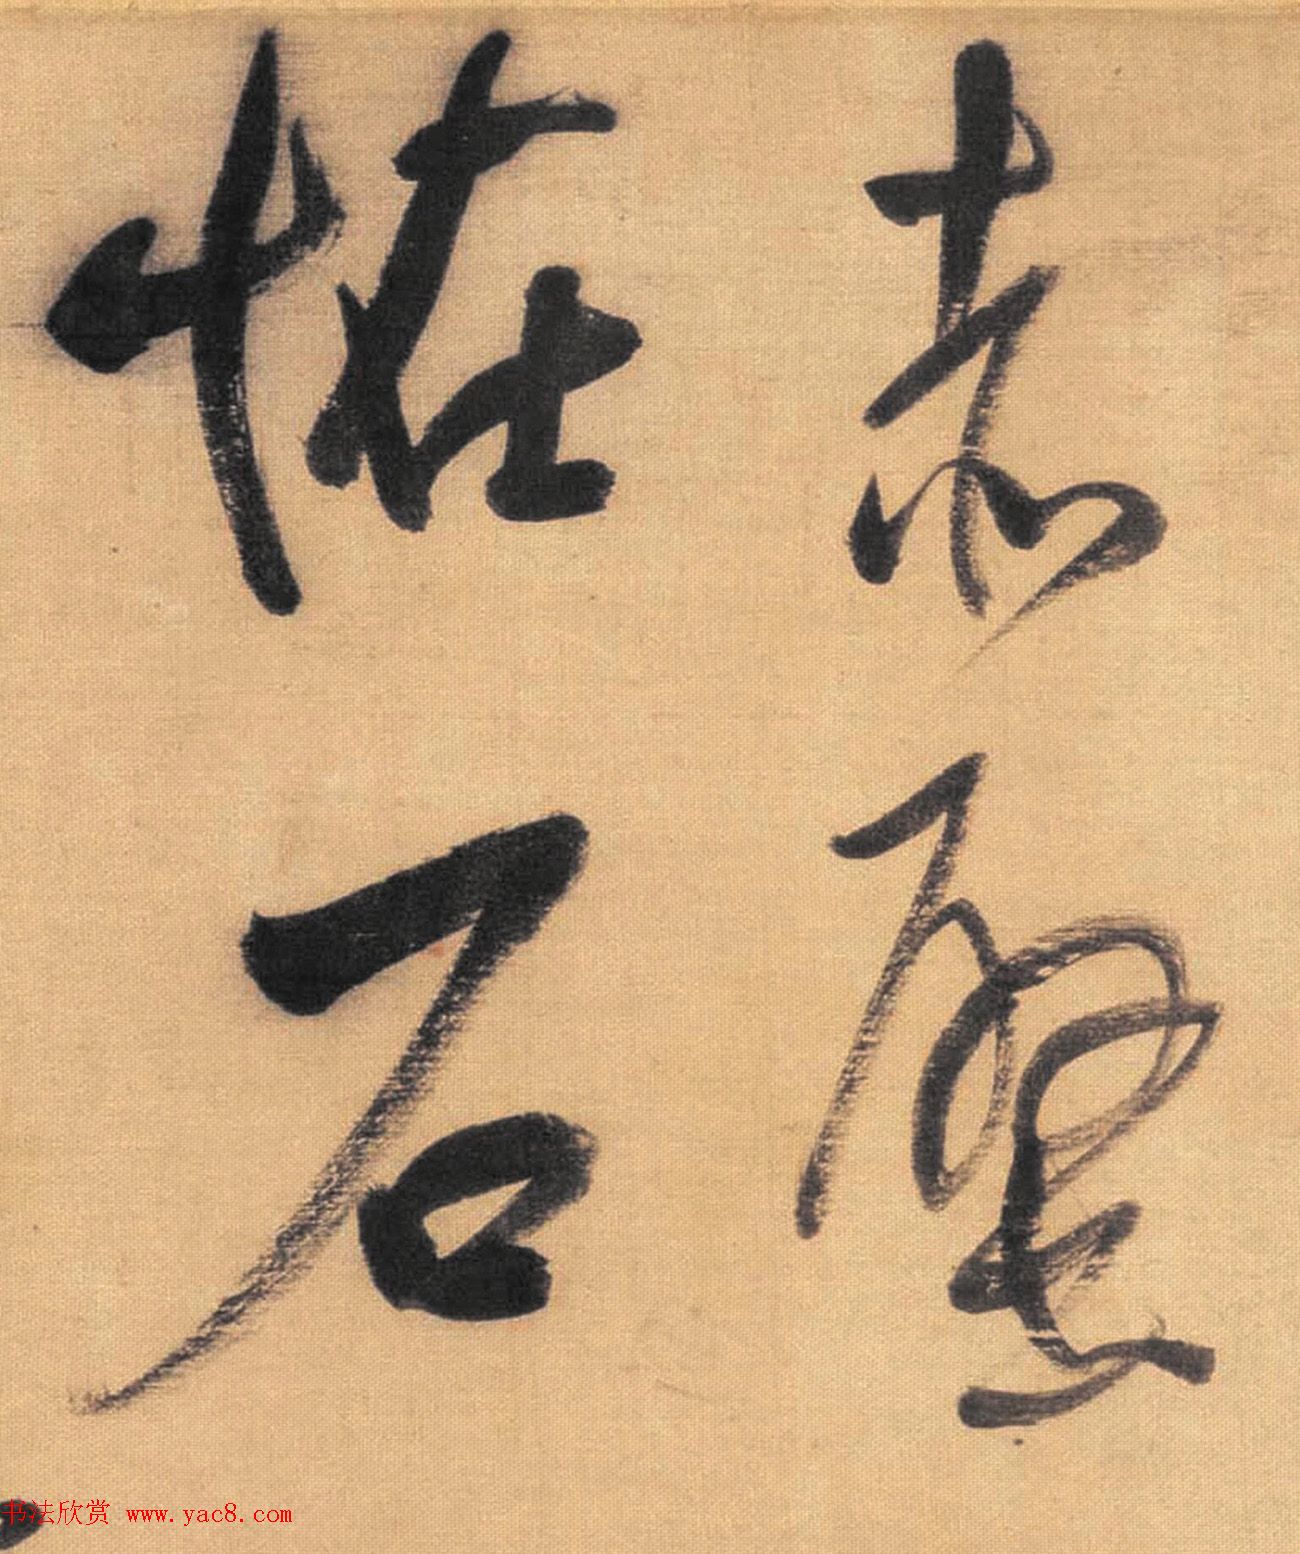 赤壁
恠石
书法欣赏 www.yac8.com